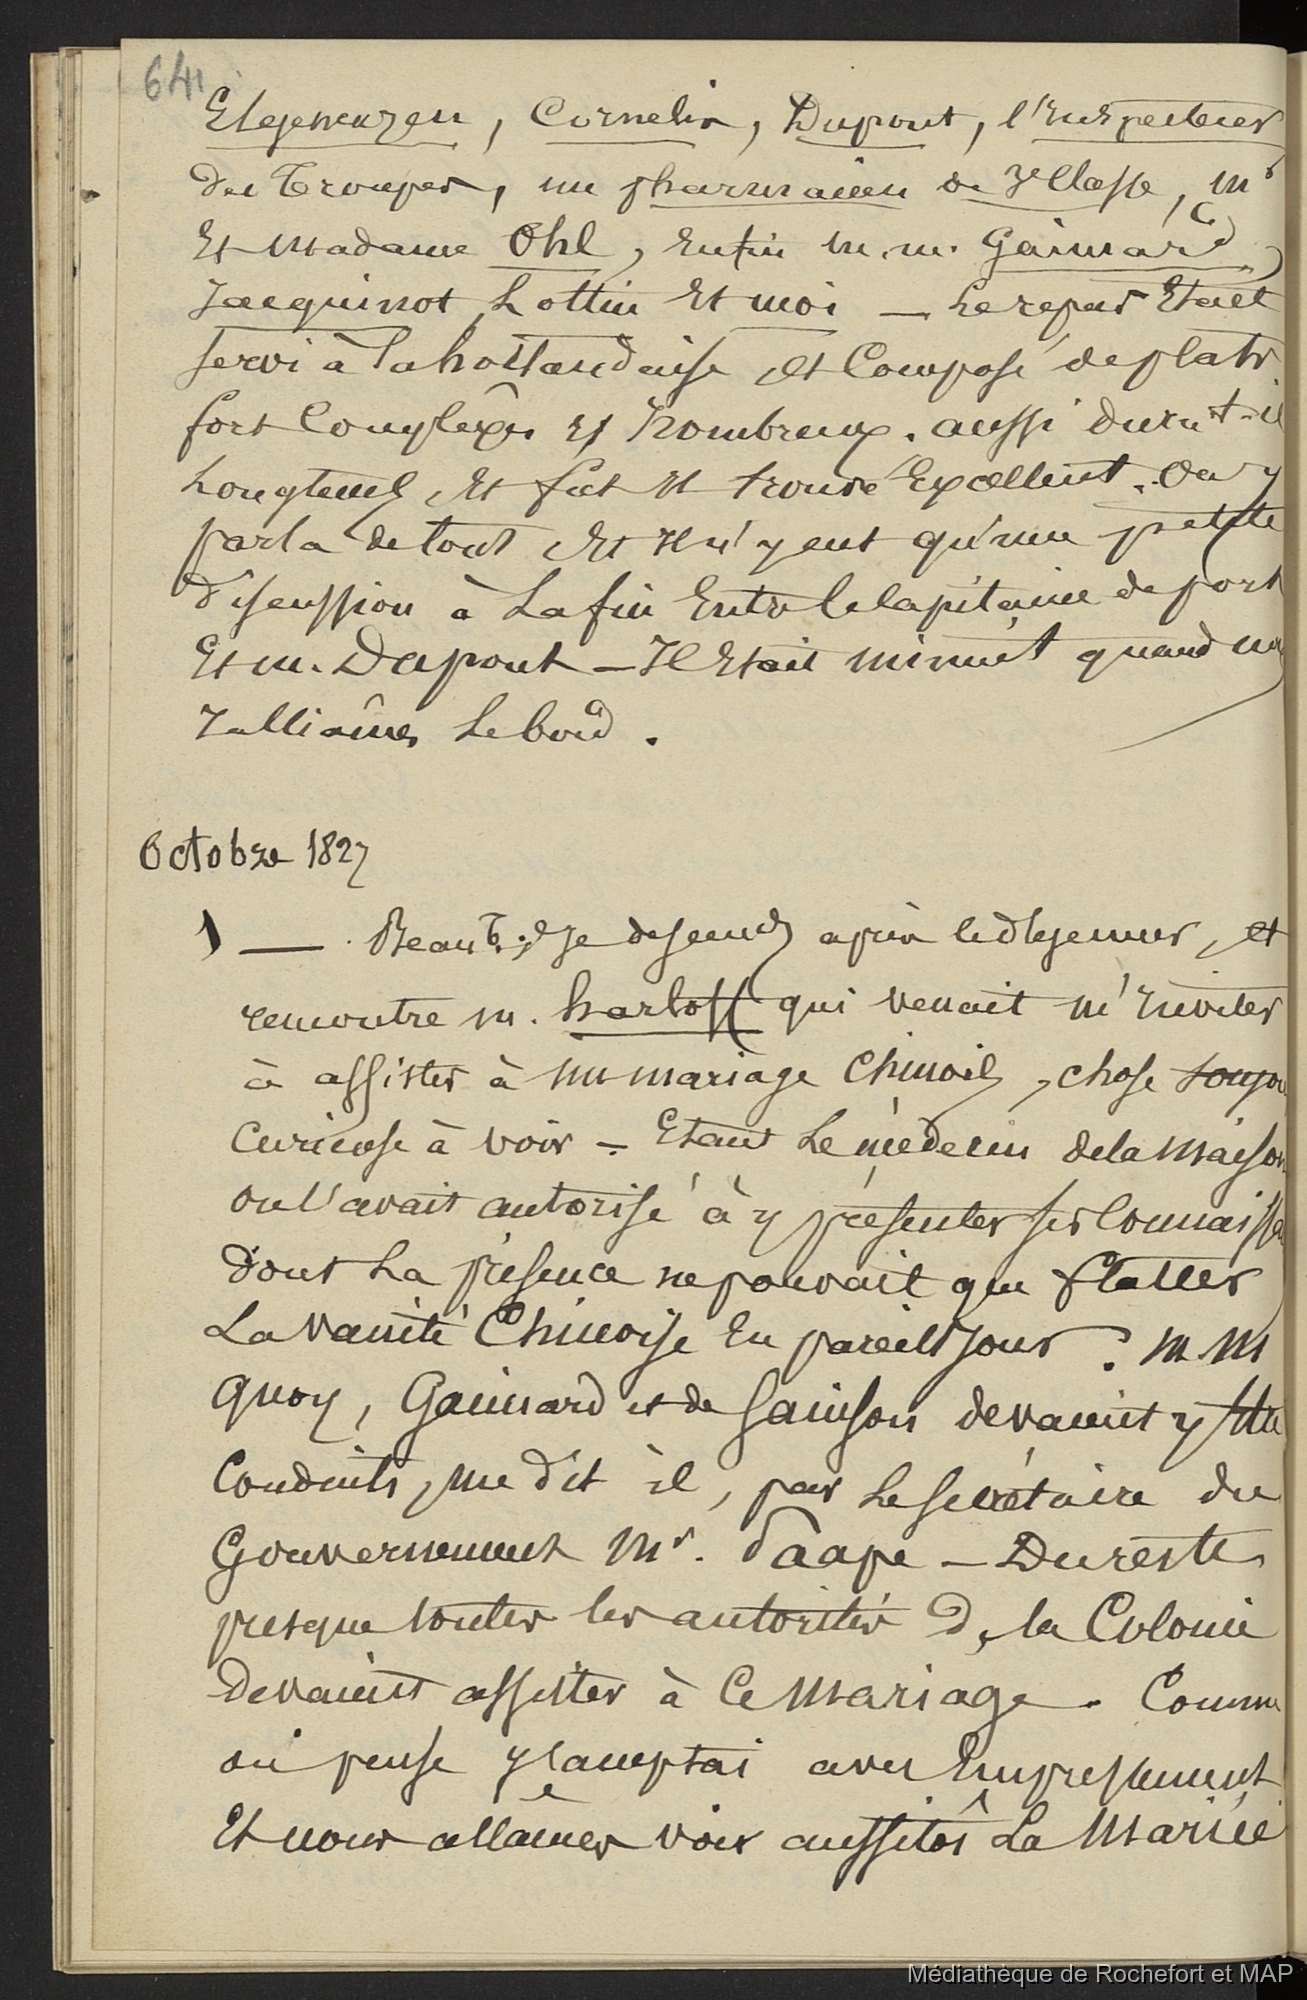 641
Elgenhuyzen, Cornelis, Dupont, l'Inspecteur
des Troupes, un pharmacien de 3e Classe, Mr
Et Madame Ohl, Enfin M.M. Gaimard,
Jacquinot Lottin Et moi — Le repas Etait
servi à la hollandaise et Composé de plats
fort Complexes Et Nombreux. aussi dura-t-il
Longtems, Et fut trouvé Excellent. On y
parla de tout Et Il n'y eut qu'une petite
discussion à La fin Entre le Capitaine de port
Et M. Dupont — Il Etait minuit quand nous
ralliâmes Le bord.
Octobre 1827
1 — Beau T. Je descends après le déjeuner, et
rencontre M. hartoff qui venait m'Inviter
à assister à un mariage Chinois, chose
Curieuse à voir — Etant Le médecin de la Maison
on l'avait autorisé à y présenter ses Connaissan
dont La présence ne pouvait que flatter
La vanité Chinoise En pareil jour. M.M
Quoy, Gaimard et de Sainson devaient y être
Conduits, me dit il, par Le Secrétaire du
Gouvernement Mr. Paape — Du reste
presque toutes les autorités De la Colonie
Devaient assister à Ce Mariage. Comme
on pense j'acceptai avec Empressement
Et nous allâmes voir aussitôt La Mariée
Médiathèque de Rochefort et MAP